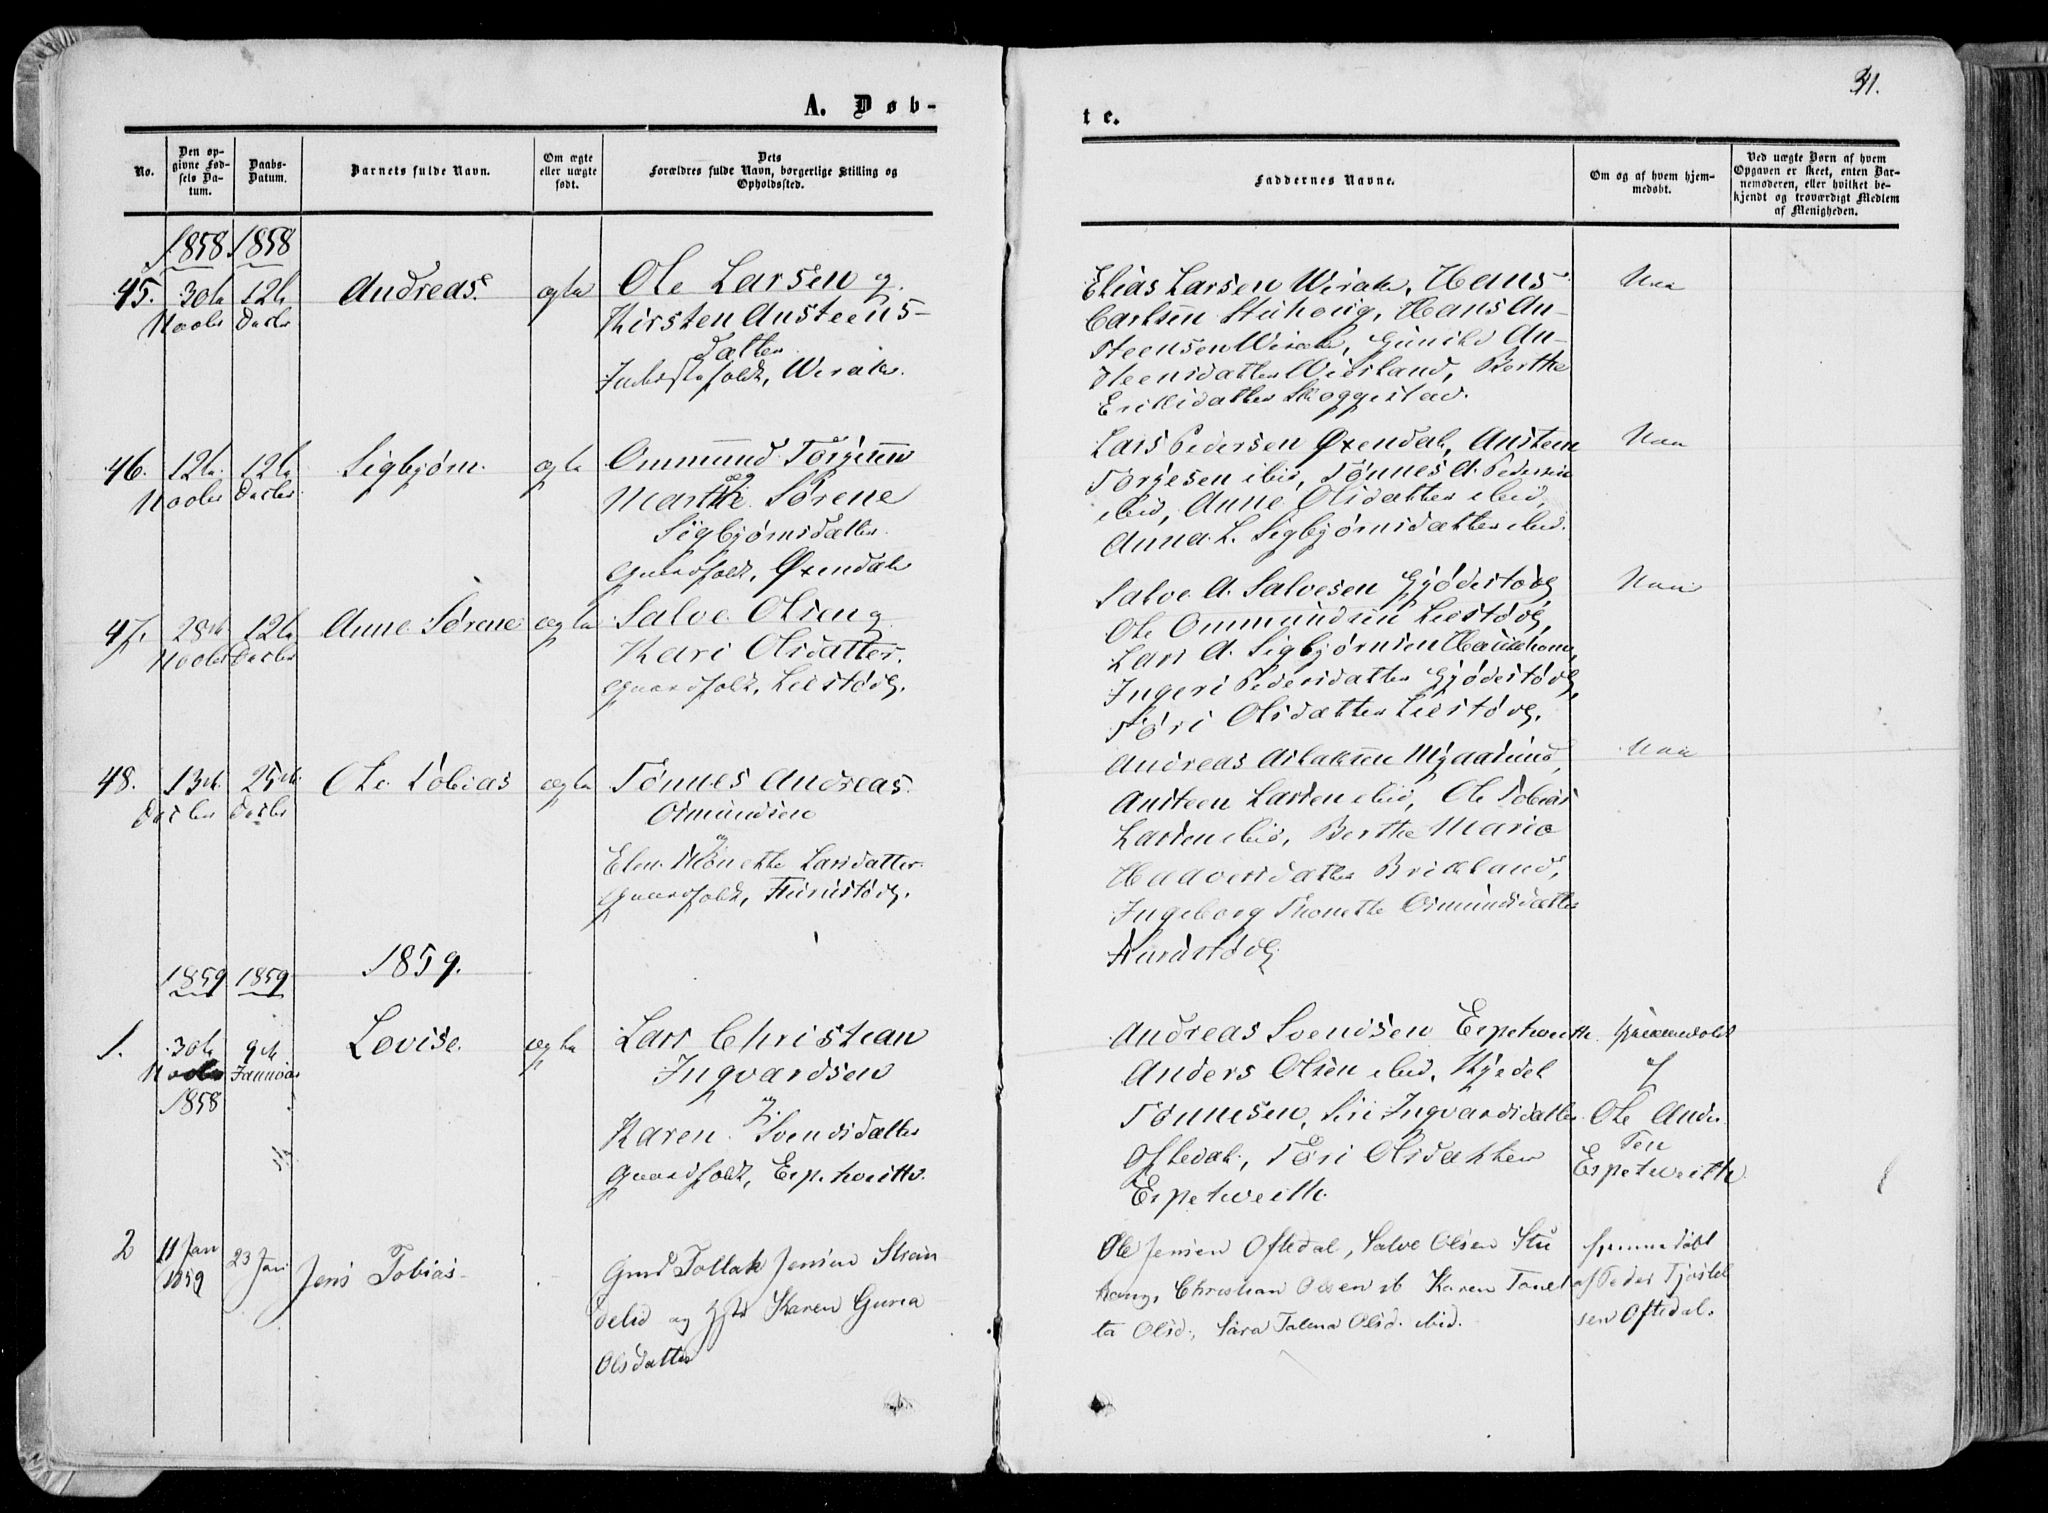 31.
A. Døb-
te.
No.
Den op-
givne Fød-
sels Da-
tum.
Daabs-
Datum.
Barnets fulde Navn.
Om ægte
eller uægte
født.
Dets
Forældres fulde Navn, borgerlige Stilling og
Opholdssted.
Faddernes Navne.
Om og af hvem hjem-
medøbt.
Ved uægte Børn af hvem
Opgaven er skeet, enten Bar-
nemoderen, eller hvilket be-
kjendt og troværdigt Medlem
af Menigheden.
1858 1858
45. 30te 12te Andreas. ægte Ole Larsen og
Novbr Decbr Kirsten Austeens-
datter
Wirak.
Elias Larsen Wirak, Hans
Carlsen Steihoug, Hans Au-
steensen Wirak, Gunild Au-
steensdatter Widsland, Berthe
Eriksdatter Skoggestad.
Nei
46. 12te 12te Sigbjørn. ægte Ommund Torgersen
Novbr Decbr og
Marthe Sørene
Sigbjørnsdatter
Gaardfolk, Øxendal
Lars Pedersen Øxendal, Austeen
Torgesen ibid, Tønnes A. Pedersen
ibid, Anne Olsdatter ibid,
Anna L. Sigbjørnsdatter ibid.
Nei
47. 28de 12te Anne Sørene ægte Salve Olsen og
Novbr Decbr Kari Olsdatter.
Gaardfolk, Liestøl.
Salve A. Salvesen Gjødestøl,
Ole Ommundsen Liestøl,
Lars A. Sigbjørnsen
Ingeri Pedersdatter Gjødestøl,
Tøri Olsdatter Liestøl.
Nei
48. 13de 25de Ole Tobias ægte Tønnes Andreas
Decbr Decbr Osmundsen
og
Elen Larsdatter
Gaardfolk,
Andreas Aslaksen Mydland,
Austeen Larsen ibid, Ole Tobias
Larsen ibid, Berthe Marie
Haaversdatter Birkeland,
Ingeborg Thonette Osmundsdatter
Nei
1859 1859 1859.
1. 30te 9de Lovise. ægte Lars Christian
Novbr Januar Ingvardsen
1858 og
Karen Svendsdatter
Gaardfolk, Espetweith.
Andreas Svendsen Espetweith.
Anders Olsen ibid, Kjedel
Tønnesen, Siri Ingvardsdatter
Oftedal, Tøri Olsdatter
Espetweith.
af
Ole Ander
sen
Espetweith
2 11 Jan 23 Jan Jens Tobias Gmd Tollak Jensen Stran
1859 delid og Hstr Karen Guria
Olsdatter
Ole Jensen Oftedal, Salve Olsen Stu
houg, Christian Olsen st Karen Tonet
ta Olsd., Sara Talena Olsd. ibid.
hjemmedøbt
af Peder Tjostel
sen Oftedal.